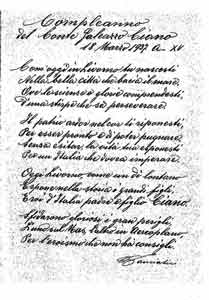 Compleanno
del Conte Galeazzo Ciano
18 Marzo 1937 a. XV
Com'oggi in Livorno tu nascesti
Nella bella città che bacia il mare,
Ove
D'una stirpe che sa perseverare
Il patrio ardor nel cor ti
Per esser pronto a di poter pugnare,
Senza la vita
Per un'Italia che dovea imperare.
Oggi Livorno, come un dì lontano
Espone nella storia i grandi figli,
Eroi d'Italia padre e figlio Ciano,
Sfidarono gloriosi i gran perigli
L'un sul Mar, l'altro in Aeroplano,
Per l'eroismo che non ha consigli.